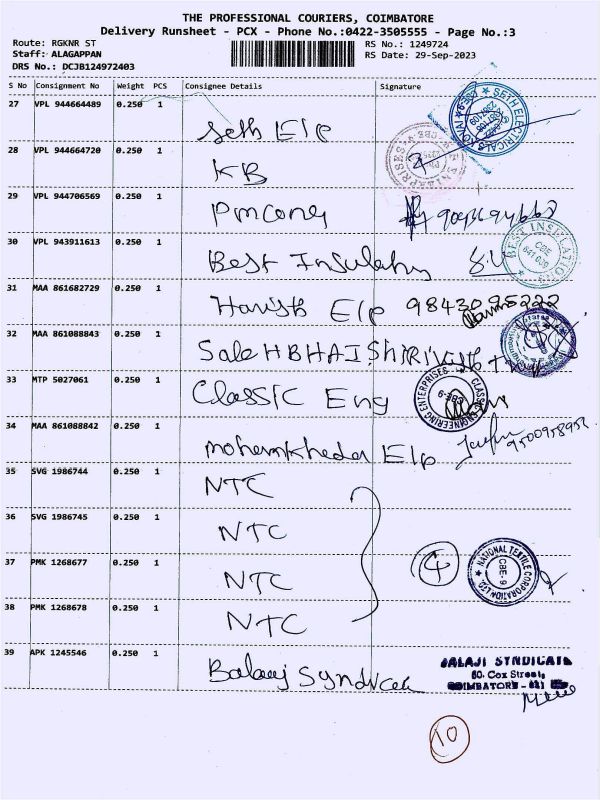 THE PROFESSIONAL COURIERS, COIMBATORE
Delivery Runsheet - PCX - Phone No.:0422-3505555 - Page No.:3
Route: RGKNR ST RS No.: 1249724
Staff: ALAGAPPAN RS Date: 29-Sep-2023
DRS No.: DCJB124972403
S No Consignment No Weight PCS Consignee Details Signature
27 VPL 944664489 0.250 1 Seth Elp
SETH ELECTRICALS
28 VPL 944664720 0.250 1 KB
29 VPL 944706569 0.250 1 Pmcong
30 VPL 943911613 0.250 1 Best Insulatn
BEST INSULATION CBE 641 009
31 MAA 861682729 0.250 1 Harish Elp 9843095222
32 MAA 861088843 0.250 1 SalehBHAI
33 MTP 5027061 0.250 1 Classic Eng
CLASSIC ENGINEERING ENTERPRISES CBE-9
34 MAA 861088842 0.250 1 Elp 9500958952
35 SVG 1986744 0.250 1 NTC
36 SVG 1986745 0.250 1 NTC
37 PMK 1268677 0.250 1 NTC 4
NATIONAL TEXTILE CORPORATION LTD. CBE-9
38 PMK 1268678 0.250 1 NTC
39 APK 1245546 0.250 1 Balaaj Syndicate
BALAJI SYNDICATE
60. Cox Street,
COIMBATORE - 641
10